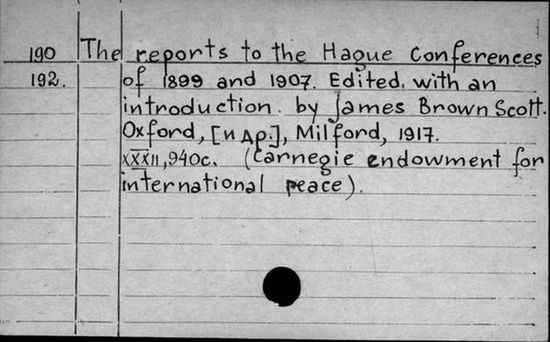 190 The reports to the Hague Conferences
192. of 1899 and 1907. Edited, with an
introduction by James Brown Scott.
Oxford, [и др.], Milford, 1917.
XXXII, 940с. (Carnegie endowment for
international peace).